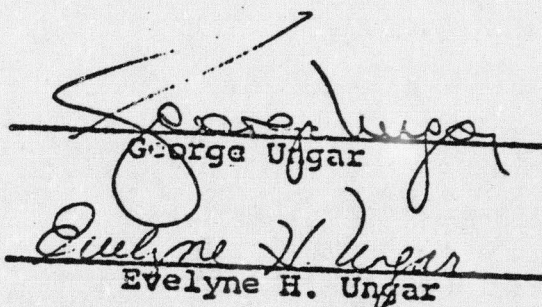 George Ungar
George Ungar
Evelyne H. Ungar
Evelyne H. Ungar